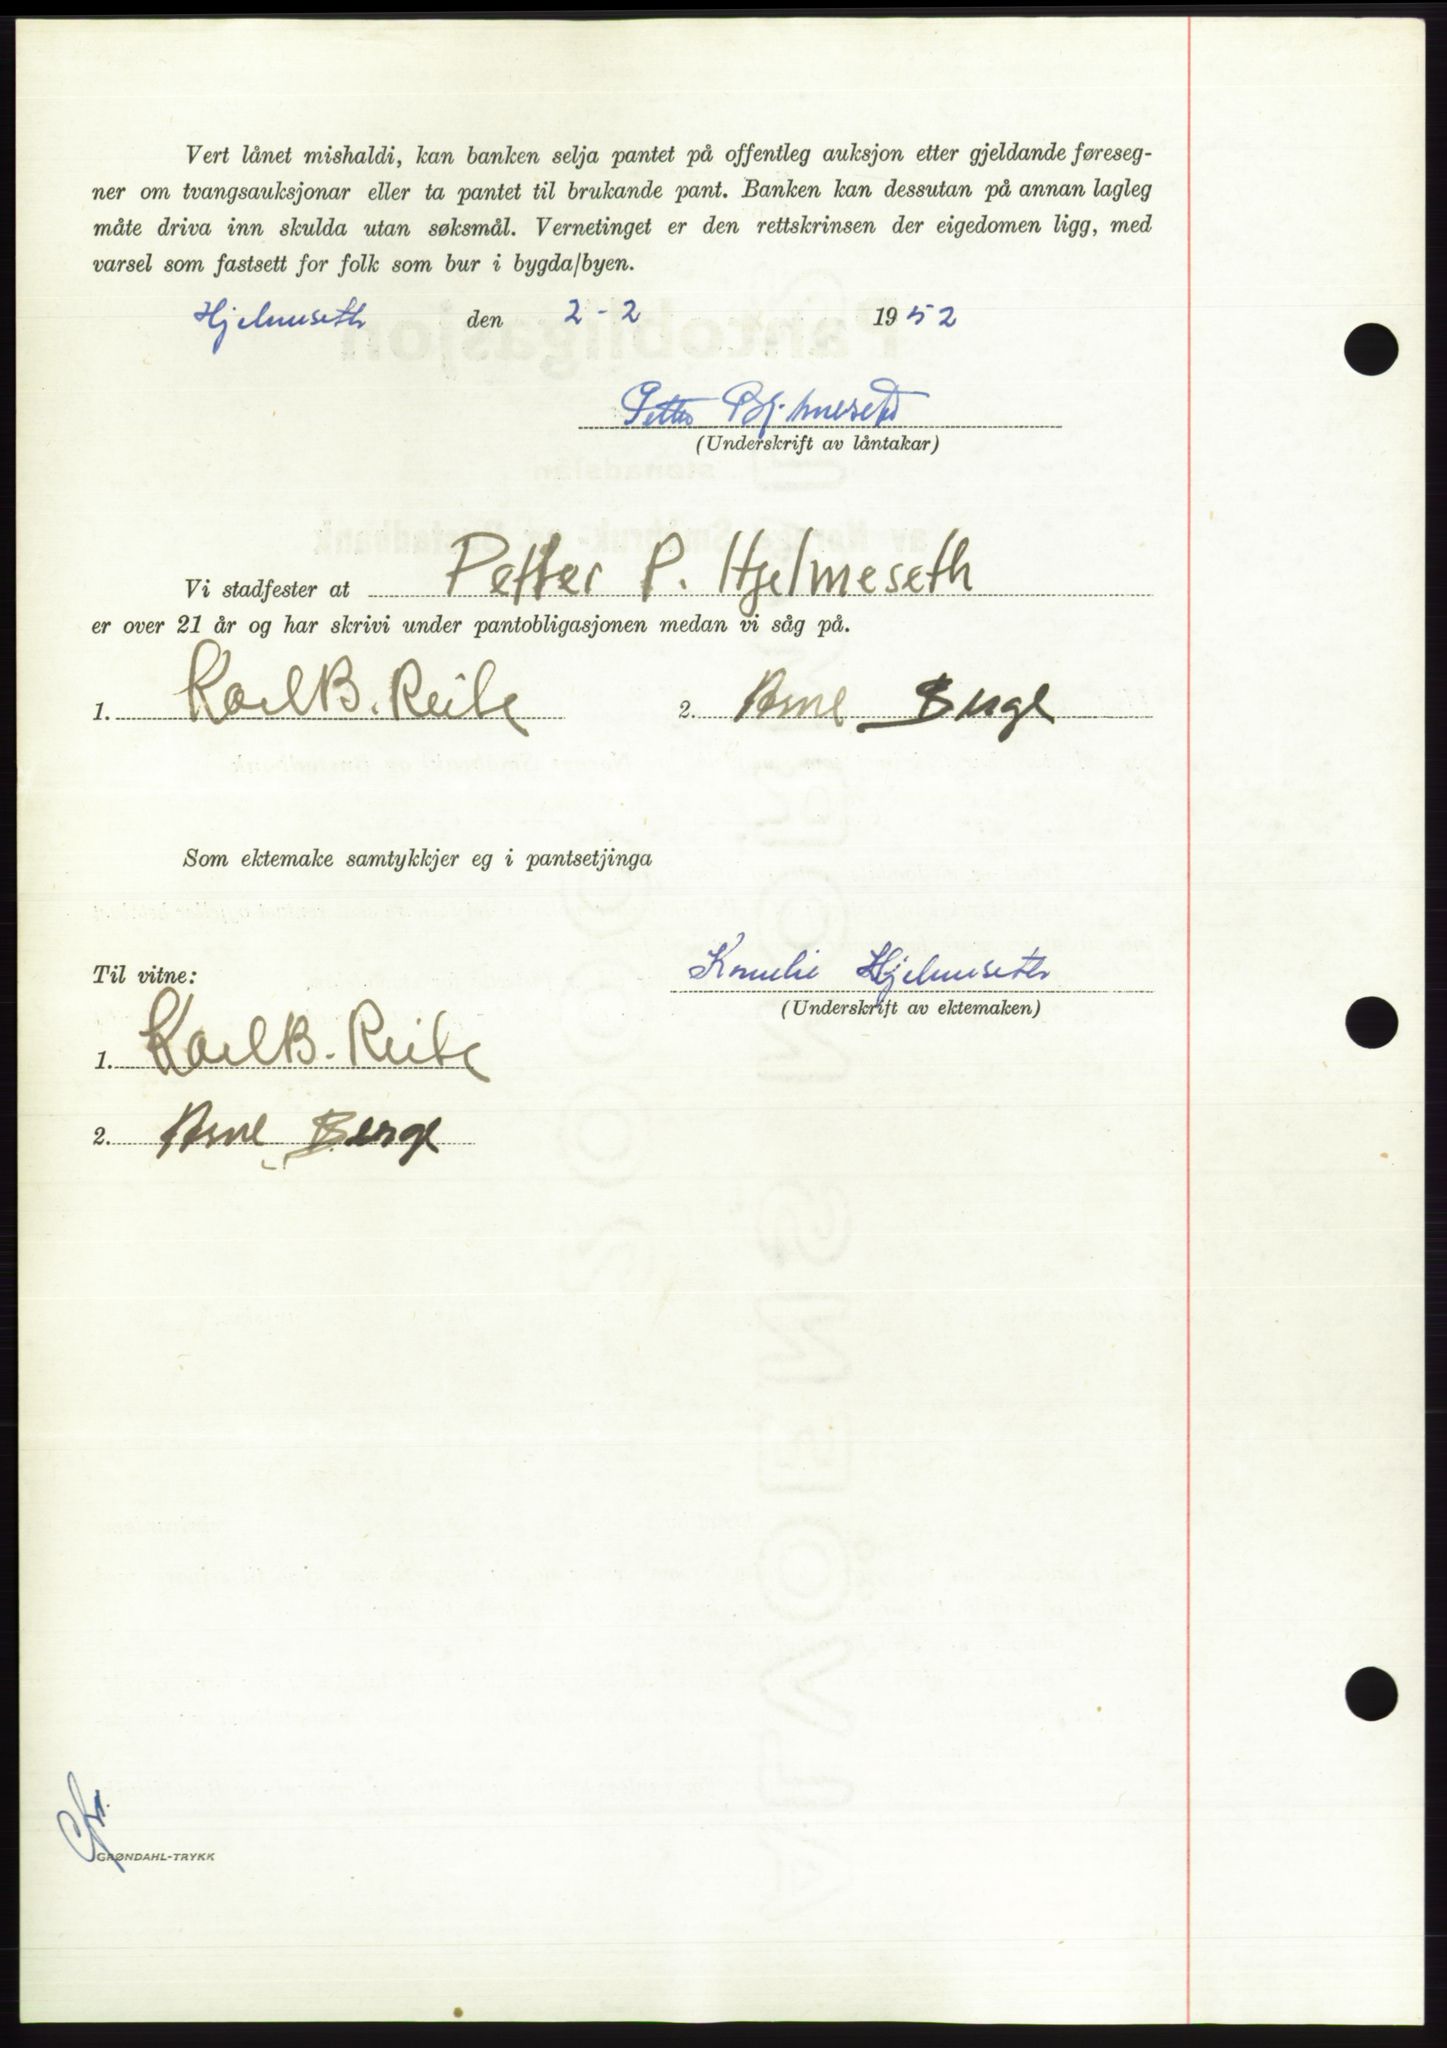 Vert lånet mishaldi, kan banken selja pantet på offentleg auksjon etter gjeldande føreseg-
ner om tvangsauksjonar eller ta pantet til brukande pant. Banken kan dessutan på annan lagleg
måte driva inn skulda utan søksmål. Vernetinget er den rettskrinsen der eigedomen ligg, med
varsel som fastsett for folk som bur i bygda/byen.
Hjelmeseth den 2-2 1952
Petter P Hjelmeseth
(Underskrift av låntakar)
Vi stadfester at Petter P. Hjelmeseth
er over 21 år og har skrivi under pantobligasjonen medan vi såg på.
1. Karl B. Reite 2. Arne Berge
Som ektemake samtykkjer eg i pantsetjinga
Til vitne: Kornelie Hjelmeseth
(Underskrift av ektemaken)
1. Karl B. Reite
2. Arne Berge
GRØNDAHL-TRYKK